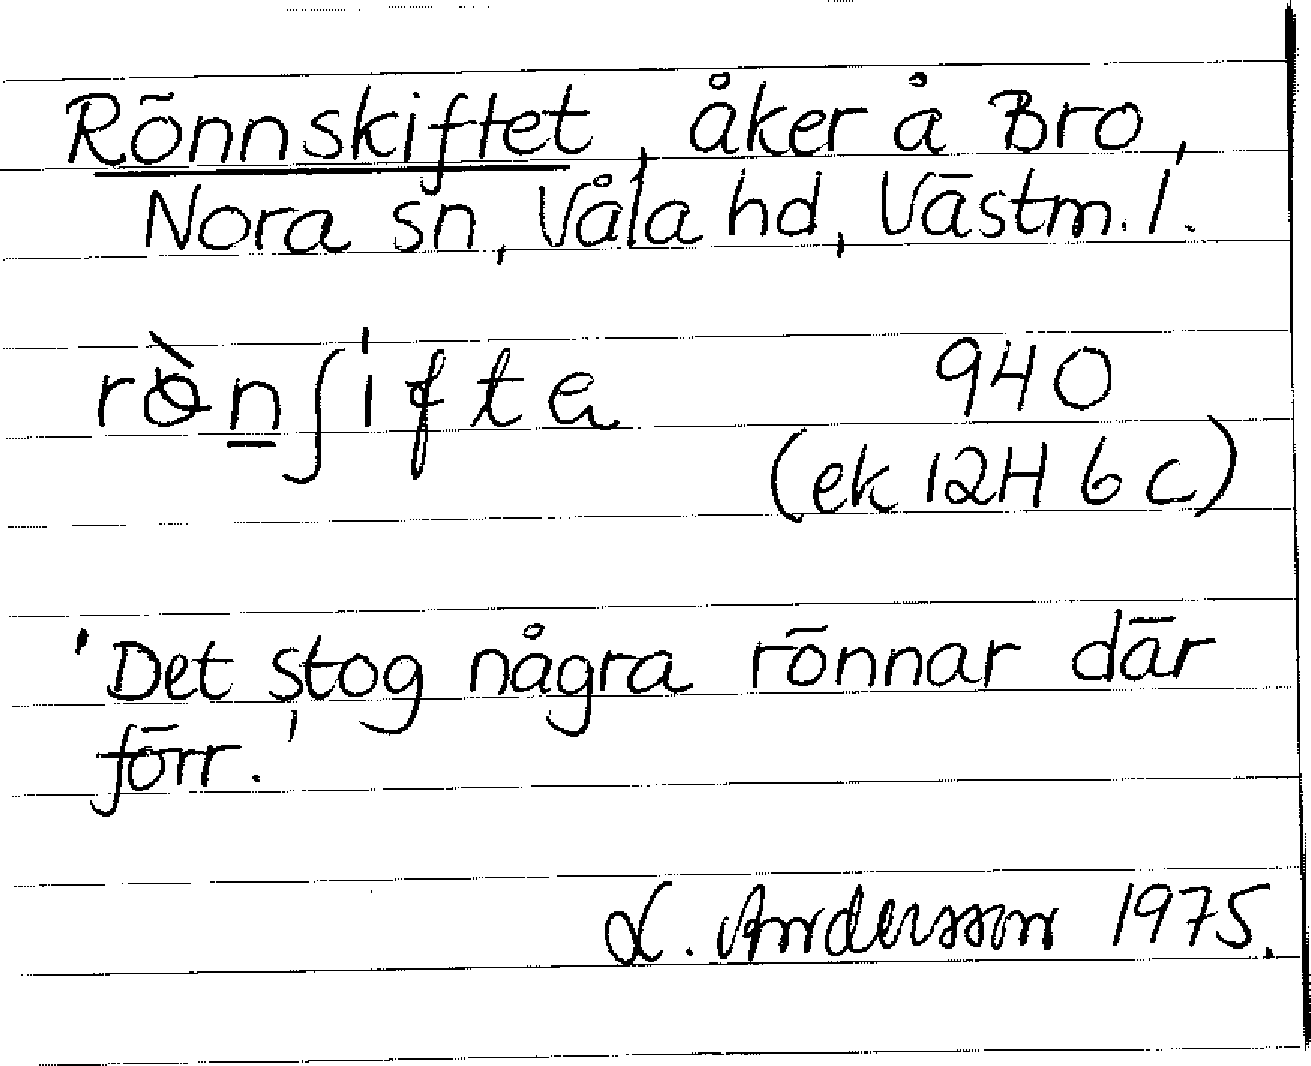 Rönnskiftet, åker å Bro,
Nora sn, Våla hd, Västm. l.
rɵ̀n̲ʃifta 940
(ek 12H 6 c)
'Det stog några rönnar där
förr.'
L. Andersson 1975.